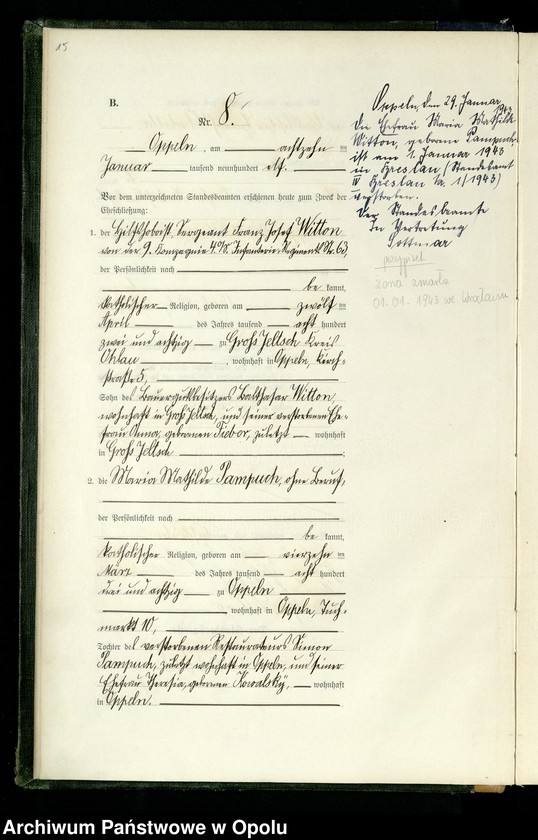 15
B.
Nr. 8.
Oppeln, am achtzehn ten
Januar tausend neunhundert elf.
Vor dem unterzeichneten Standesbeamten erschienen heute zum Zweck der
Eheschließung:
1. der Hilfshoboist, Sergeant Franz Josef Witton
von der 9. Kompagnie Infanterie-Regiments Nr. 63,
der Persönlichkeit nach
be kannt,
katholischer Religion, geboren am zwölf ten
April des Jahres tausend acht hundert
zwei und achtzig zu Groß Jeltsch Kreis
Ohlau, wohnhaft in Oppeln, Kirch-
straße 5,
Sohn des Bauergutsbesitzers Balthasar Witton,
wohnhaft in Groß Jeltsch, und seiner verstorbenen Ehe-
frau Anna, geborenen Tidor, zuletzt wohnhaft
in Groß Jeltsch;
2. die Maria Mathilde Pampuch, ohne Beruf,
der Persönlichkeit nach
be kannt,
katholischer Religion, geboren am vierzehn ten
März des Jahres tausend acht hundert
drei und achtzig zu Oppeln
wohnhaft in Oppeln, Tuch-
markt 10,
Tochter des verstorbenen Restaurateurs Simon
Pampuch, zuletzt wohnhaft in Oppeln, und seiner
Ehefrau Theresia, geborenen Kowalsky, wohnhaft
in Oppeln.
Oppeln, den 29. Januar 1943
Die Ehefrau Maria Mathilde
Witton, geborene Pampuch,
ist am 1. Januar 1943
in Breslau (Standesamt
IV Breslau Nr. 1/1943)
verstorben.
Der Standesbeamte
In Vertretung
Kottmar
przypisek
żona zmarła
01.01.1943 we Wrocławiu
Archiwum Państwowe w Opolu